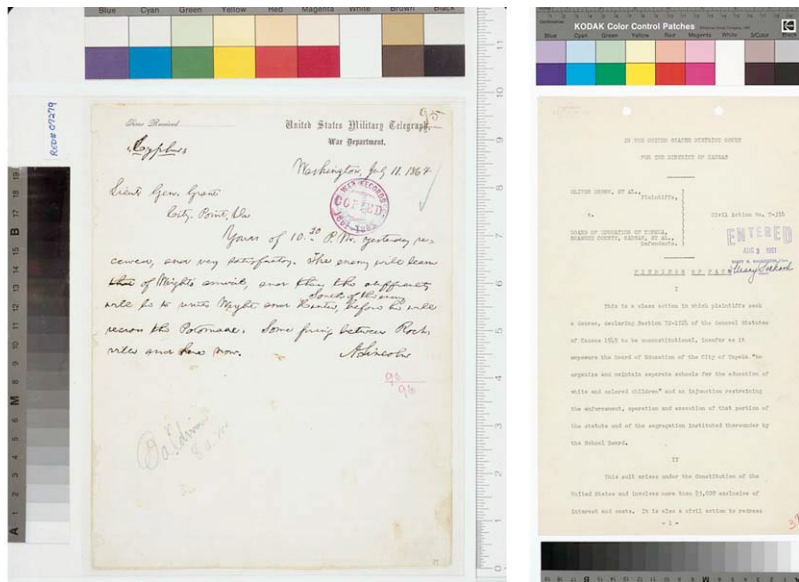 Blue Cyan Green Yellow Red Magenta White Brown Black
RED# 07279
95
Time Received
United States Military Telegraph,
War Department.
Cypher
Washington, July 11. 1864
Lieut Gen. Grant
City-Point, Va
Yours of 10.30 P.M. yesterday re-
ceived, and very satisfactory. The enemy will learn
of Wrights arrival, and then the difficulty
will be to unite Wright and Hunter,
South of the enemy
before he will
recross the Potomac. Some firing between Rock-
ville and here now.
A. Lincoln
WAR RECORDS
COPIED
1861-1865
98
96
Baldwin
8 a.m
KODAK Color Control Patches
Blue Cyan Green Yellow Red Magenta White 3/Color Black
IN THE UNITED STATES DISTRICT COURT
FOR THE DISTRICT OF KANSAS
OLIVER BROWN, ET AL.,
Plaintiffs,
v.
Civil Action No. T-316
BOARD OF EDUCATION OF TOPEKA,
SHAWNEE COUNTY, KANSAS, ET AL.,
Defendants.
ENTERED
AUG 3 1951
FINDINGS OF FACT
I
This is a class action in which plaintiffs seek
a decree, declaring Section 72-1724 of the General Statutes
of Kansas 1949 to be unconstitutional, insofar as it
empowers the Board of Education of the City of Topeka "to
organize and maintain separate schools for the education of
white and colored children" and an injunction restraining
the enforcement, operation and execution of that portion of
the statute and of the segregation instituted thereunder by
the School Board.
II
This suit arises under the Constitution of the
United States and involves more than $3,000 exclusive of
interest and costs. It is also a civil action to redress
- 1 -